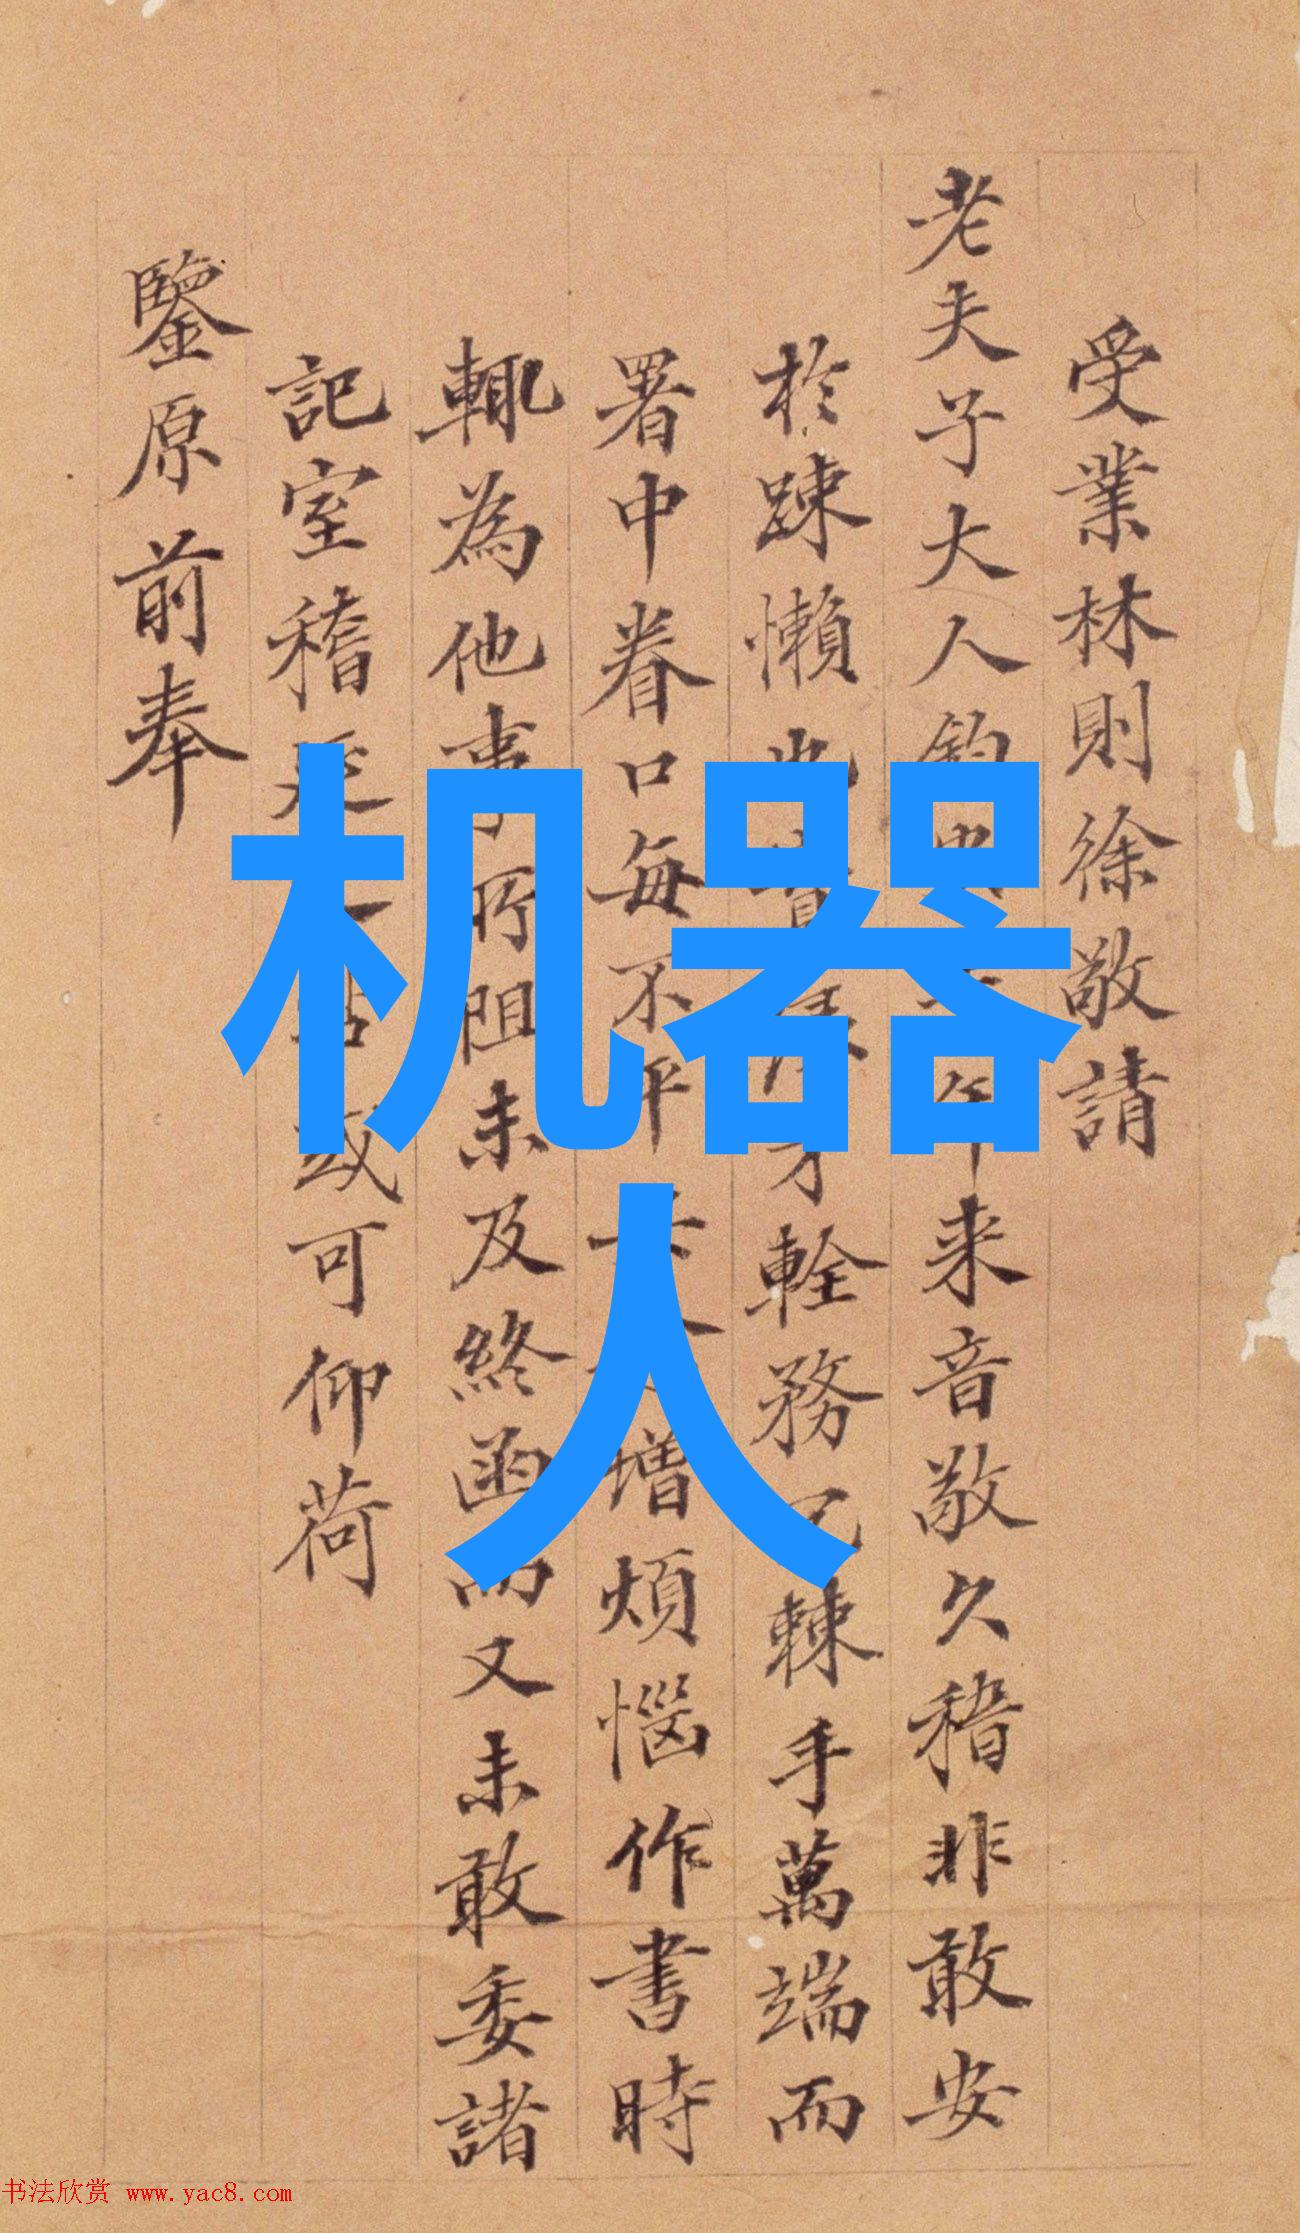 受業林則徐敬請
老夫子大人鈞 来音敬久稽非敢安
於踈懶 輇務 棘手萬端而
署中眷口每不平 增煩惱作書時
輙為他事所阻未及終函而又未敢委諸
記室稽延 或可仰荷
鑒原前奉
机器
人
书法欣赏 www.yac8.com